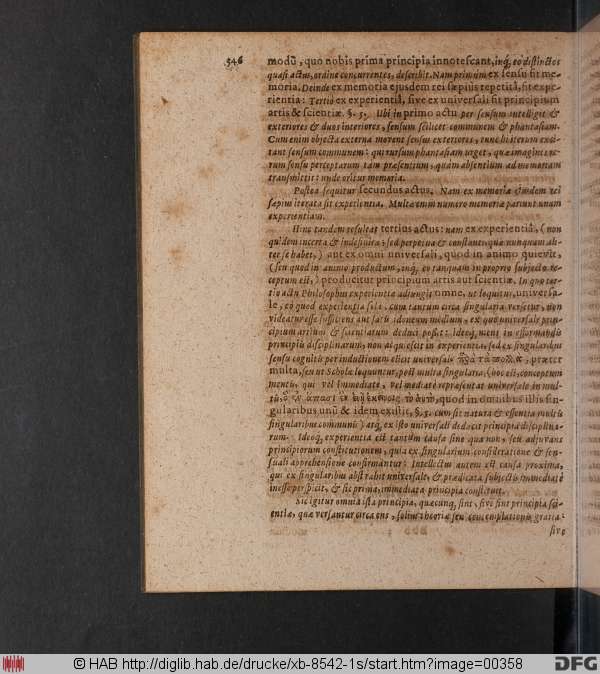 546
modũ, quo nobis prima principia innotescant, inq́, eo distinctos
quasi actus, ordine concurrentes, describit. Nam primùm ex sensu fit me-
moria. Deinde ex memoria ejusdem rei sæpius repetitâ, fit expe-
rientia: Tertiò ex experientiâ, sive ex universali fit principium
artis & scientiæ. §. 5. Ubi in primo actu per sensum intelligit &
exteriores & duos interiores, sensum scilicet communem & phantasiam.
Cum enim objecta externa movent sensus exteriores, tunc hi iterum exci-
tant sensum communem: qui rursum phantasiam urget, quæ imagines re-
rum sensu perceptarum tam præsentium, quàm absentium ad memoriam
transmittit: unde oritur memoria.
Postea sequitur secundus actus. Nam ex memoriâ ejusdem rei
sæpius iterata fit experientia. Multæ enim numero memoriæ pariunt unam
experientiam.
Hinc tandem resultat tertius actus: nam ex experientiâ, (non
quidem incerta & indefinita; sed perpetua & constante, quæ nunquam ali-
ter se habet,) aut ex omni universali, quod in animo quievit,
(seu quod in animo productum, inq́, eo tanquam in proprio subjecto re-
ceptum est,) producitur principium artis aut scientiæ. In quo ter-
tio actu Philosophus experientiæ adjungit omne, ut loquitur, universa-
le, eò quod experientia sola, cum tantum circa singularia versetur, non
videatur esse sufficiens aut satis idoneum medium, ex quo universale prin-
cipium artium & scientiarum deduci possit: Ideoq́, mens in efformandis
principiis disciplinarum, non acquiescit in experientia, sed ex singularibus
sensu cognitis per inductionem elicit universale παρὰ τὰ πολλὰ, præter
multa, seu ut Scholæ loquuntur, post multa singularia, (hoc est, conceptum
mentis, qui vel immediatè, vel mediatè repræsentat universale in mul-
tis, quod in omnibus illis sin-
gularibus unũ & idem existit, §. 5. cum sit natura & essentia multis
singularibus communis) atq́, ex isto universali deducit principia disciplina-
rum. Ideoq́, experientia est tantùm causa sine qua non, seu adjuvans
principiorum constitutionem, quia ex singularium consideratione & sen-
suali apprehensione confirmantur: Intellectus autem est causa proxima,
qui ex singularibus abstrahit universale, & prædicata subjectis immediatè
inesse perspicit, & sic prima, immediata principia constituit.
Sic igitur omnia ista principia, quæcunq́, sint, sive sint principia sci-
entiæ, quæ versantur circa ens, solius theoriæ seu contemplationis gratia:
sive
© HAB http://diglib.hab.de/drucke/xb-8542-1s/start.htm?image=00358
DFG